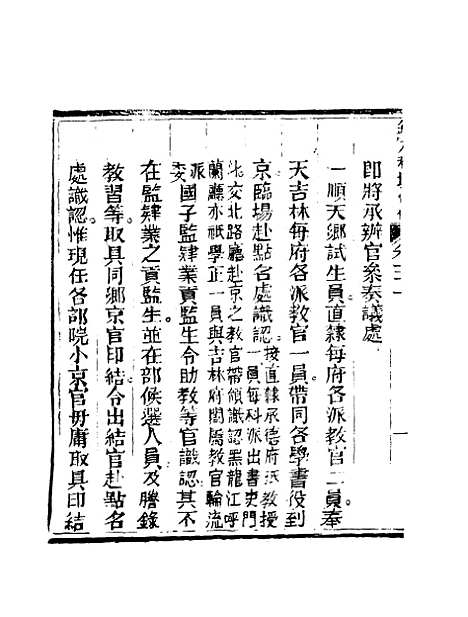 即將承辦官叅奏議處
一順天鄉試生員直隸每府各派教官二員奉
天吉林每府各派教官一員帶同各學書役到
京臨場赴點名處識認
按直隸承德府派教授
一員每科派出書吏門
斗交北路廳赴京之教官帶領識認黑龍江呼
蘭廳亦祇學正一員與吉林府閤屬教官輪流
派委
國子監肄業貢監生令助教等官識認其不
在監肄業之貢監生並在部候選人員及謄錄
教習等取具同鄉京官印結令出結官赴點名
處識認惟現任各部院小京官毋庸取具印結